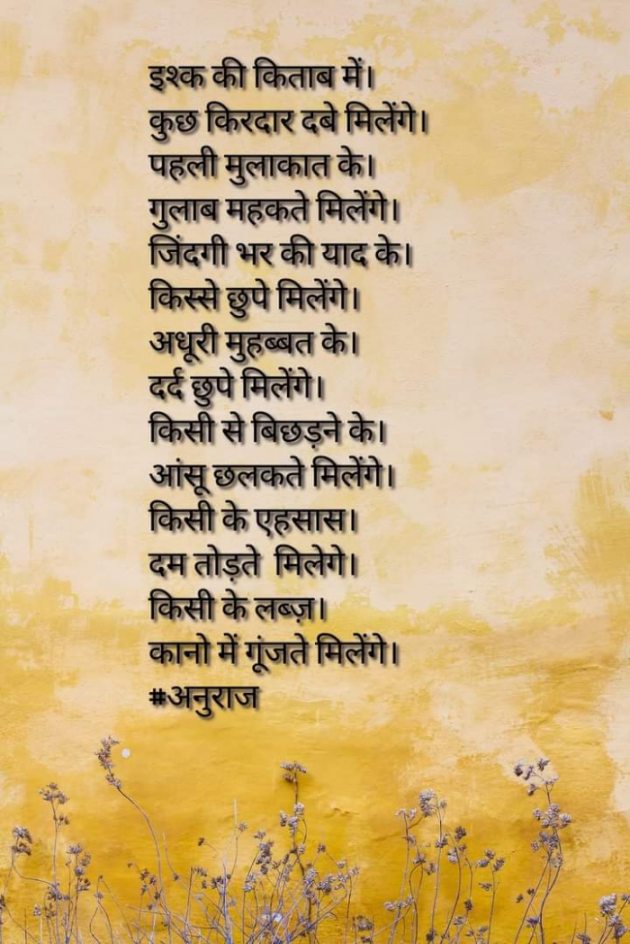 इश्क की किताब में।
कुछ किरदार दबे मिलेंगे।
पहली मुलाकात के।
गुलाब महकते मिलेंगे।
जिंदगी भर की याद के।
किस्से छुपे मिलेंगे।
अधूरी मुहब्बत के।
दर्द छुपे मिलेंगे।
किसी से बिछड़ने के।
आंसू छलकते मिलेंगे।
किसी के एहसास।
दम तोड़ते  मिलेगे।
किसी के लब्ज़।
कानो में गूंजते मिलेंगे।
#अनुराज